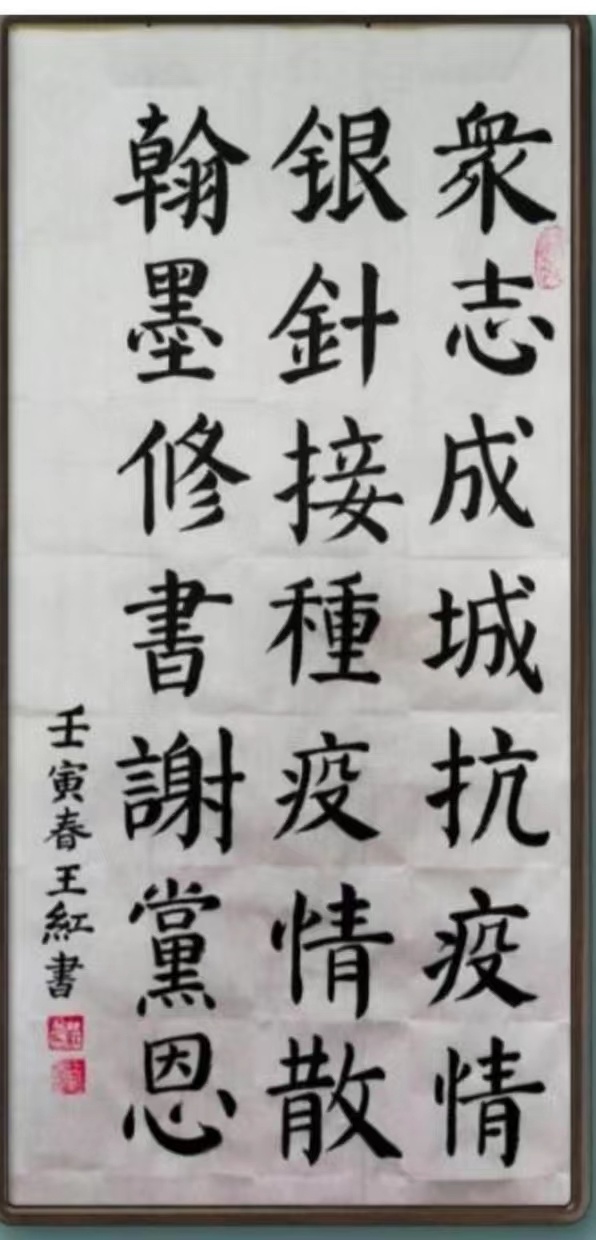 衆志成城抗疫情
銀針接種疫情散
翰墨修書謝黨恩
壬寅春王紅書